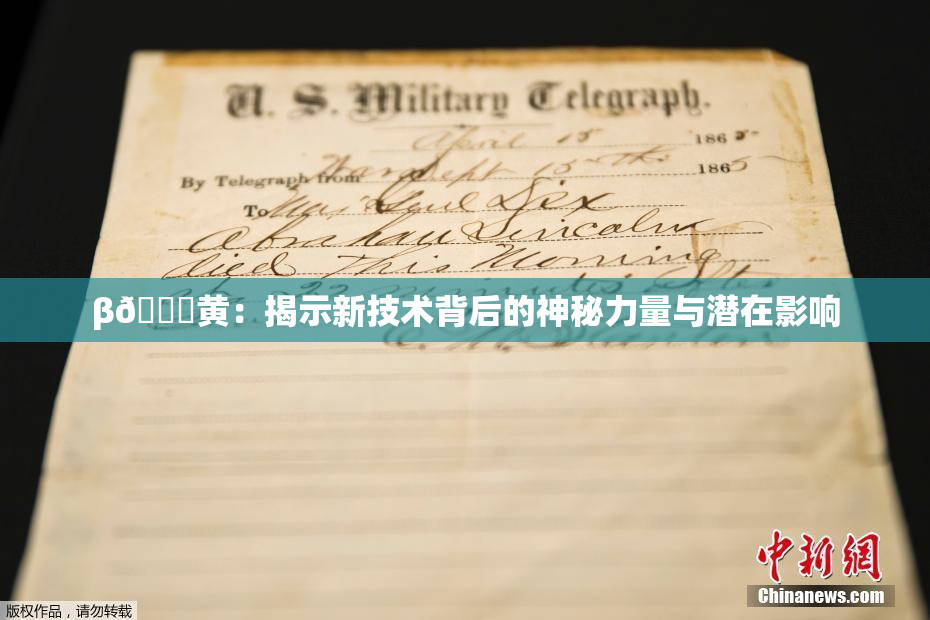 U. S. Military Telegraph.
April 15 1865
By Telegraph from War Dept 15th 1865
To Maj Genl Dix
Abraham Lincoln
died This Morning
22 minutes after
βð黄：揭示新技术背后的神秘力量与潜在影响
中新网
Chinanews.com
版权作品，请勿转载